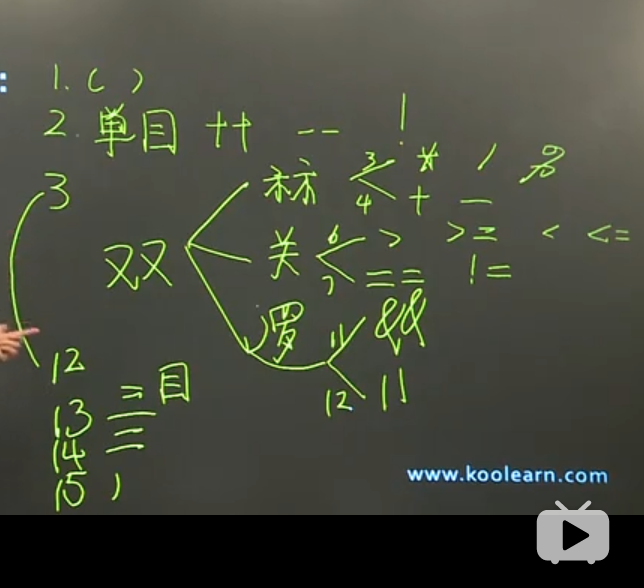 1.( )
2. 单目 ++ -- !
3
算 3 * / %
4 + -
双 关 6 > >= < <=
7 == !=
逻 11 &&
12 ||
12
13 三目
14 =
15 ,
www.koolearn.com